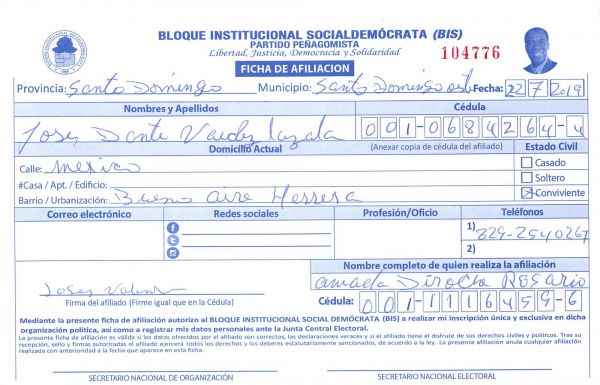 BLOQUE INSTITUCIONAL SOCIALDEMÓCRATA (BIS)
PARTIDO PEÑAGOMISTA
Libertad, Justicia, Democracia y Solidaridad
104776
FICHA DE AFILIACION
Provincia: Santo Domingo Municipio: Santo Domingo Fecha: 22 7 2019
Nombres y Apellidos Cédula
Dante 001-0684264-4
Domicilio Actual (Anexar copia de cédula del afiliado) Estado Civil
Calle: Mexico Casado
#Casa / Apt. / Edificio: Soltero
Barrio / Urbanización: Bueno Aire Herrera Conviviente
Correo electrónico Redes sociales Profesión/Oficio Teléfonos
1) 829-2540267
2)
Nombre completo de quien realiza la afiliación
Rosario
Firma del afiliado (Firme igual que en la Cédula) Cédula: 001-1116459-6
Mediante la presente ficha de afiliación autorizo al BLOQUE INSTITUCIONAL SOCIAL DEMÓCRATA (BIS) a realizar mi inscripción única y exclusiva en dicha
organización política, así como a registrar mis datos personales ante la Junta Central Electoral.
La presente ficha de afiliación es válida si los datos ofrecidos por el afiliado son correctos, las declaraciones veraces y si el afiliado tiene el disfrute de sus derechos civiles y políticos. Tras su
recepción, sello y firmas autorizadas el afiliado ejercerá todos los derechos y los deberes estatutariamente sancionados, de acuerdo a la ley. La presente afiliación anula cualquier afiliación
realizada con anterioridad a la fecha que aparece en esta ficha.
SECRETARIO NACIONAL DE ORGANIZACIÓN SECRETARIO NACIONAL ELECTORAL